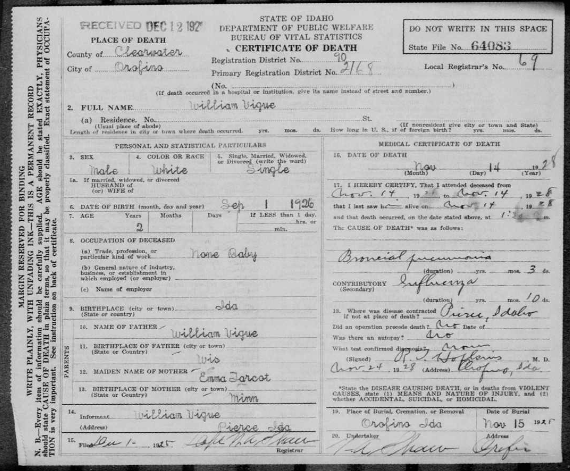 RECEIVED DEC 13 192
STATE OF IDAHO
DEPARTMENT OF PUBLIC WELFARE
BUREAU OF VITAL STATISTICS
CERTIFICATE OF DEATH
DO NOT WRITE IN THIS SPACE
State File No. 64083
PLACE OF DEATH
County of Clearwater
City of Orofino
Registration District No. 90
Primary Registration District No. 2168
Local Registrar's No. 69
(No. St.
(If death occurred in a hospital or institution, give its name instead of street and number.)
2. FULL NAME William Vique
(a) Residence. No. St.
(Usual place of abode) (If nonresident give city or town and State)
Length of residence in city or town where death occurred. yrs. mos. ds. How long in U. S., if of foreign birth? yrs. mos. ds.
MARGIN RESERVED FOR BINDING
WRITE PLAINLY, WITH UNFADING INK—THIS IS A PERMANENT RECORD
N. B.—Every item of information should be carefully supplied. AGE should be stated EXACTLY, PHYSICIANS
should state CAUSE OF DEATH in plain terms, so that it may be properly classified. Exact statement of OCCUPA-
TION is very important. See instruction on back of certificate.
PERSONAL AND STATISTICAL PARTICULARS
3. SEX 4. COLOR OR RACE 5. Single, Married, Widowed, or Divorced (write the word)
Male White Single
If married, widowed, or divorced
HUSBAND of
(or) WIFE of
6. DATE OF BIRTH (month, day and year) Sep 1 1926
7. AGE Years Months Days If LESS than 1 day, hrs. or min.
2
8. OCCUPATION OF DECEASED
(a) Trade, profession, or
particular kind of work None Baby
(b) General nature of industry,
business, or establishment in
which employed (or employer)
(c) Name of employer
9. BIRTHPLACE (city or town) Ida
(State or country)
PARENTS
10. NAME OF FATHER William Vique
11. BIRTHPLACE OF FATHER (city or town)
(State or Country) Wis
12. MAIDEN NAME OF MOTHER Emma
13. BIRTHPLACE OF MOTHER (city or town)
(State or Country) Minn
14. Informant William Vique
Pierce Ida
15. Filed Dec 1- 1925
Registrar
MEDICAL CERTIFICATE OF DEATH
16. DATE OF DEATH Nov 14 1928
17. I HEREBY CERTIFY, That I attended deceased from
Nov. 14 19 to Nov. 14 1928
that I last saw alive on Nov 14 1928
and that death occurred, on the date stated above, at 1: m.
The CAUSE OF DEATH* was as follows:
Broncial pneumonia
(duration) yrs. mos. 3 ds.
CONTRIBUTORY Influenza
(Secondary)
(duration) yrs. mos. 10 ds.
18. Where was disease contracted
if not at place of death? Pierce, Idaho
Did an operation precede death? No Date of
Was there an autopsy? No
What test confirmed diagnosis?
(Signed) M. D.
Nov 24, 1928 (Address) Orofino, Ida.
*State the DISEASE CAUSING DEATH, or in deaths from VIOLENT
CAUSES, state (1) MEANS AND NATURE OF INJURY, and (2)
whether ACCIDENTAL, SUICIDAL, or HOMICIDAL.
19. Place of Burial, Cremation, or Removal Date of Burial
Orofino Ida Nov 15 1925
20. Undertaker Address
Shaw Orofino